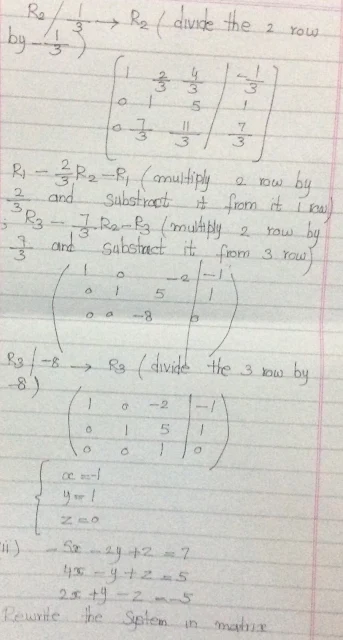 R₂ / 1/3 → R₂ ( divide the 2 row
by -1/3 )
1 2/3 4/3 | -1/3
0 1 5 | 1
0 7/3 11/3 | 7/3
R₁ - 2/3 R₂ - R₁ ( multiply 2 row by
2/3 and substract it from it 1 row)
; R₃ - 7/3 R₂ - R₃ ( multibly 2 row by
7/3 and substract it from 3 row)
1 0 -2 | -1
0 1 5 | 1
0 0 -8 | 0
R₃ / -8 → R₃ ( divide the 3 row by
-8 )
1 0 -2 | -1
0 1 5 | 1
0 0 1 | 0
x = -1
y = 1
z = 0
ii) - 5x - 2y + z = 7
4x - y + z = 5
2x + y - z = -5
Rewrite the System in matrix